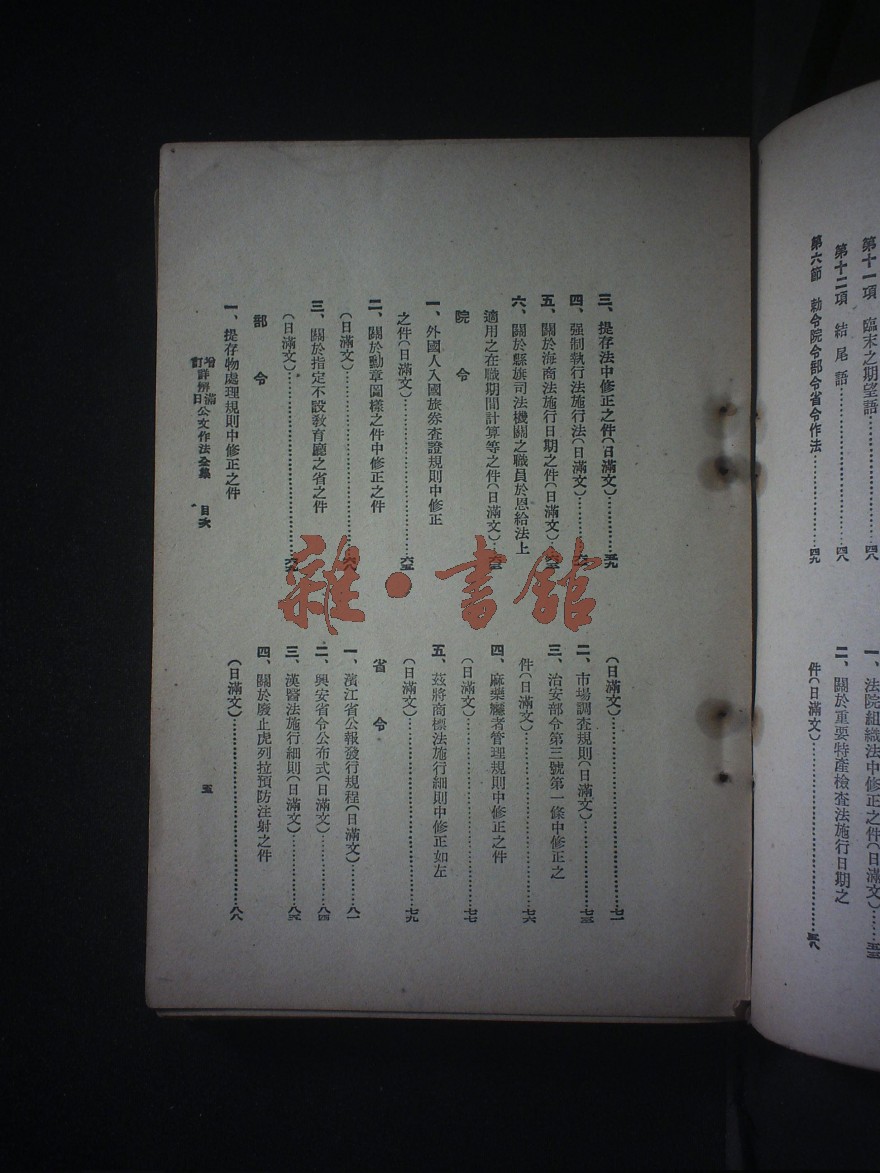 第十一項　臨末之期望語
第十二項　結尾語………四八
第六節　勅令院令部令省令作法………四九
一、法院組織法中修正之件(日滿文)………
二、關於重要特產檢查法施行日期之
件(日滿文)………五八
三、提存法中修正之件(日滿文)………五九
四、强制執行法施行法(日滿文)………
五、關於海商法施行日期之件(日滿文)………
六、關於縣旗司法機關之職員於恩給法上
適用之在職期間計算等之件(日滿文)………
院　令
一、外國人入國旅券查證規則中修正
之件(日滿文)………六五
二、關於勳章圖樣之件中修正之件
(日滿文)………六八
三、關於指定不設敎育廳之省之件
(日滿文)………六九
部　令
一、提存物處理規則中修正之件
(日滿文)………七一
二、市場調查規則(日滿文)………七三
三、治安部令第三號第一條中修正之
件(日滿文)………七六
四、麻藥癮者管理規則中修正之件
(日滿文)………七七
五、茲將商標法施行細則中修正如左
(日滿文)………七九
省　令
一、濱江省公報發行規程(日滿文)………八一
二、興安省令公布式(日滿文)………八四
三、漢醫法施行細則(日滿文)………八五
四、關於廢止虎列拉預防注射之件
(日滿文)………八八
增訂詳辨滿日公文作法全集　目次
五
雜·書館